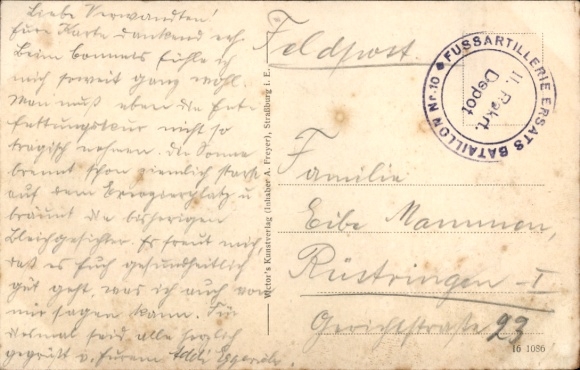 Liebe Verwandten!
Eure Karte dankend erh.
Beim Commiß fühle ich
mich soweit ganz wohl
Man muß eben die Ent-
fettungskur nicht so
tragisch nehmen. Die Sonne
brennt schon ziemlich stark
auf dem Exerzierplatz u
bräunt die bisherigen
Bleichgesichter. Es freut mich,
daß es Euch gesundheitlich
gut geht, was ich auch von
mir sagen kann. Für
diesmal seid alle herzlich
gegrüßt v. Eurem
Victor's Kunstverlag (Inhaber A. Freyer), Straßburg i. E.
Feldpost.
FUSSARTILLERIE ERSATS BATAILLON Nr. 10
II. Rekrt.
Depot
Familie
Eibe Mammen,
Rüstringen - I
Gerichtstraße 23
16 1086